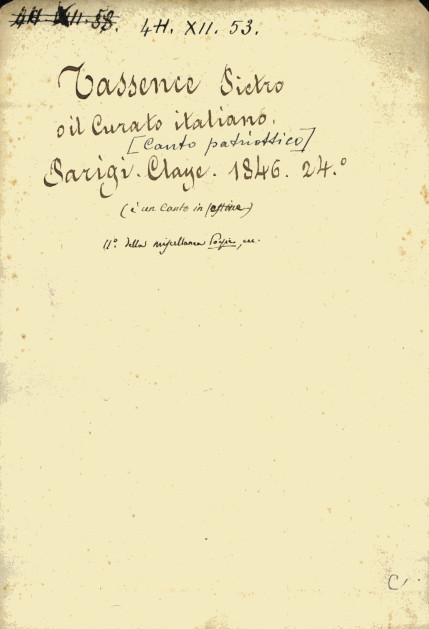 4H XII. 58. 4H. XII. 53.
Tassence Pietro
o il Curato italiano.
[Canto patriottico]
Parigi. Claye. 1846. 24.°
(è un Canto in sestine)
11.° della miscellanea Poesie, ec.
C